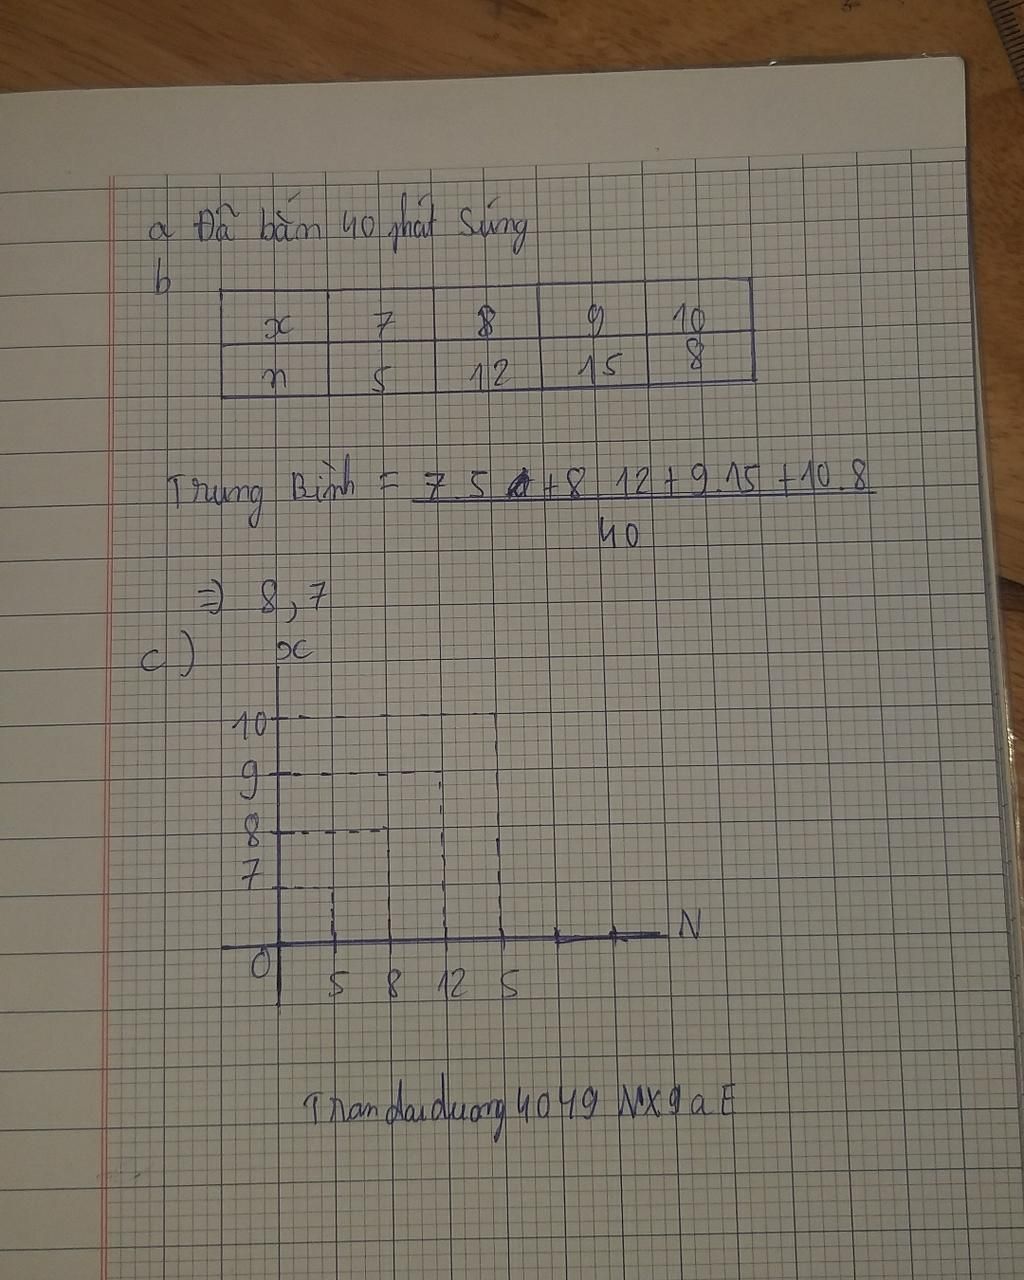 a Đã bắn 40 phát Súng
b
x 7 8 9 10
n 5 12 15 8
Trung Bình = 7 5 +8 12+9.15 +10.8
40
⇒ 8,7
c) x
10
9
8
7
N
O
5 8 12 5
Thandaiduong4049 Mx9aE